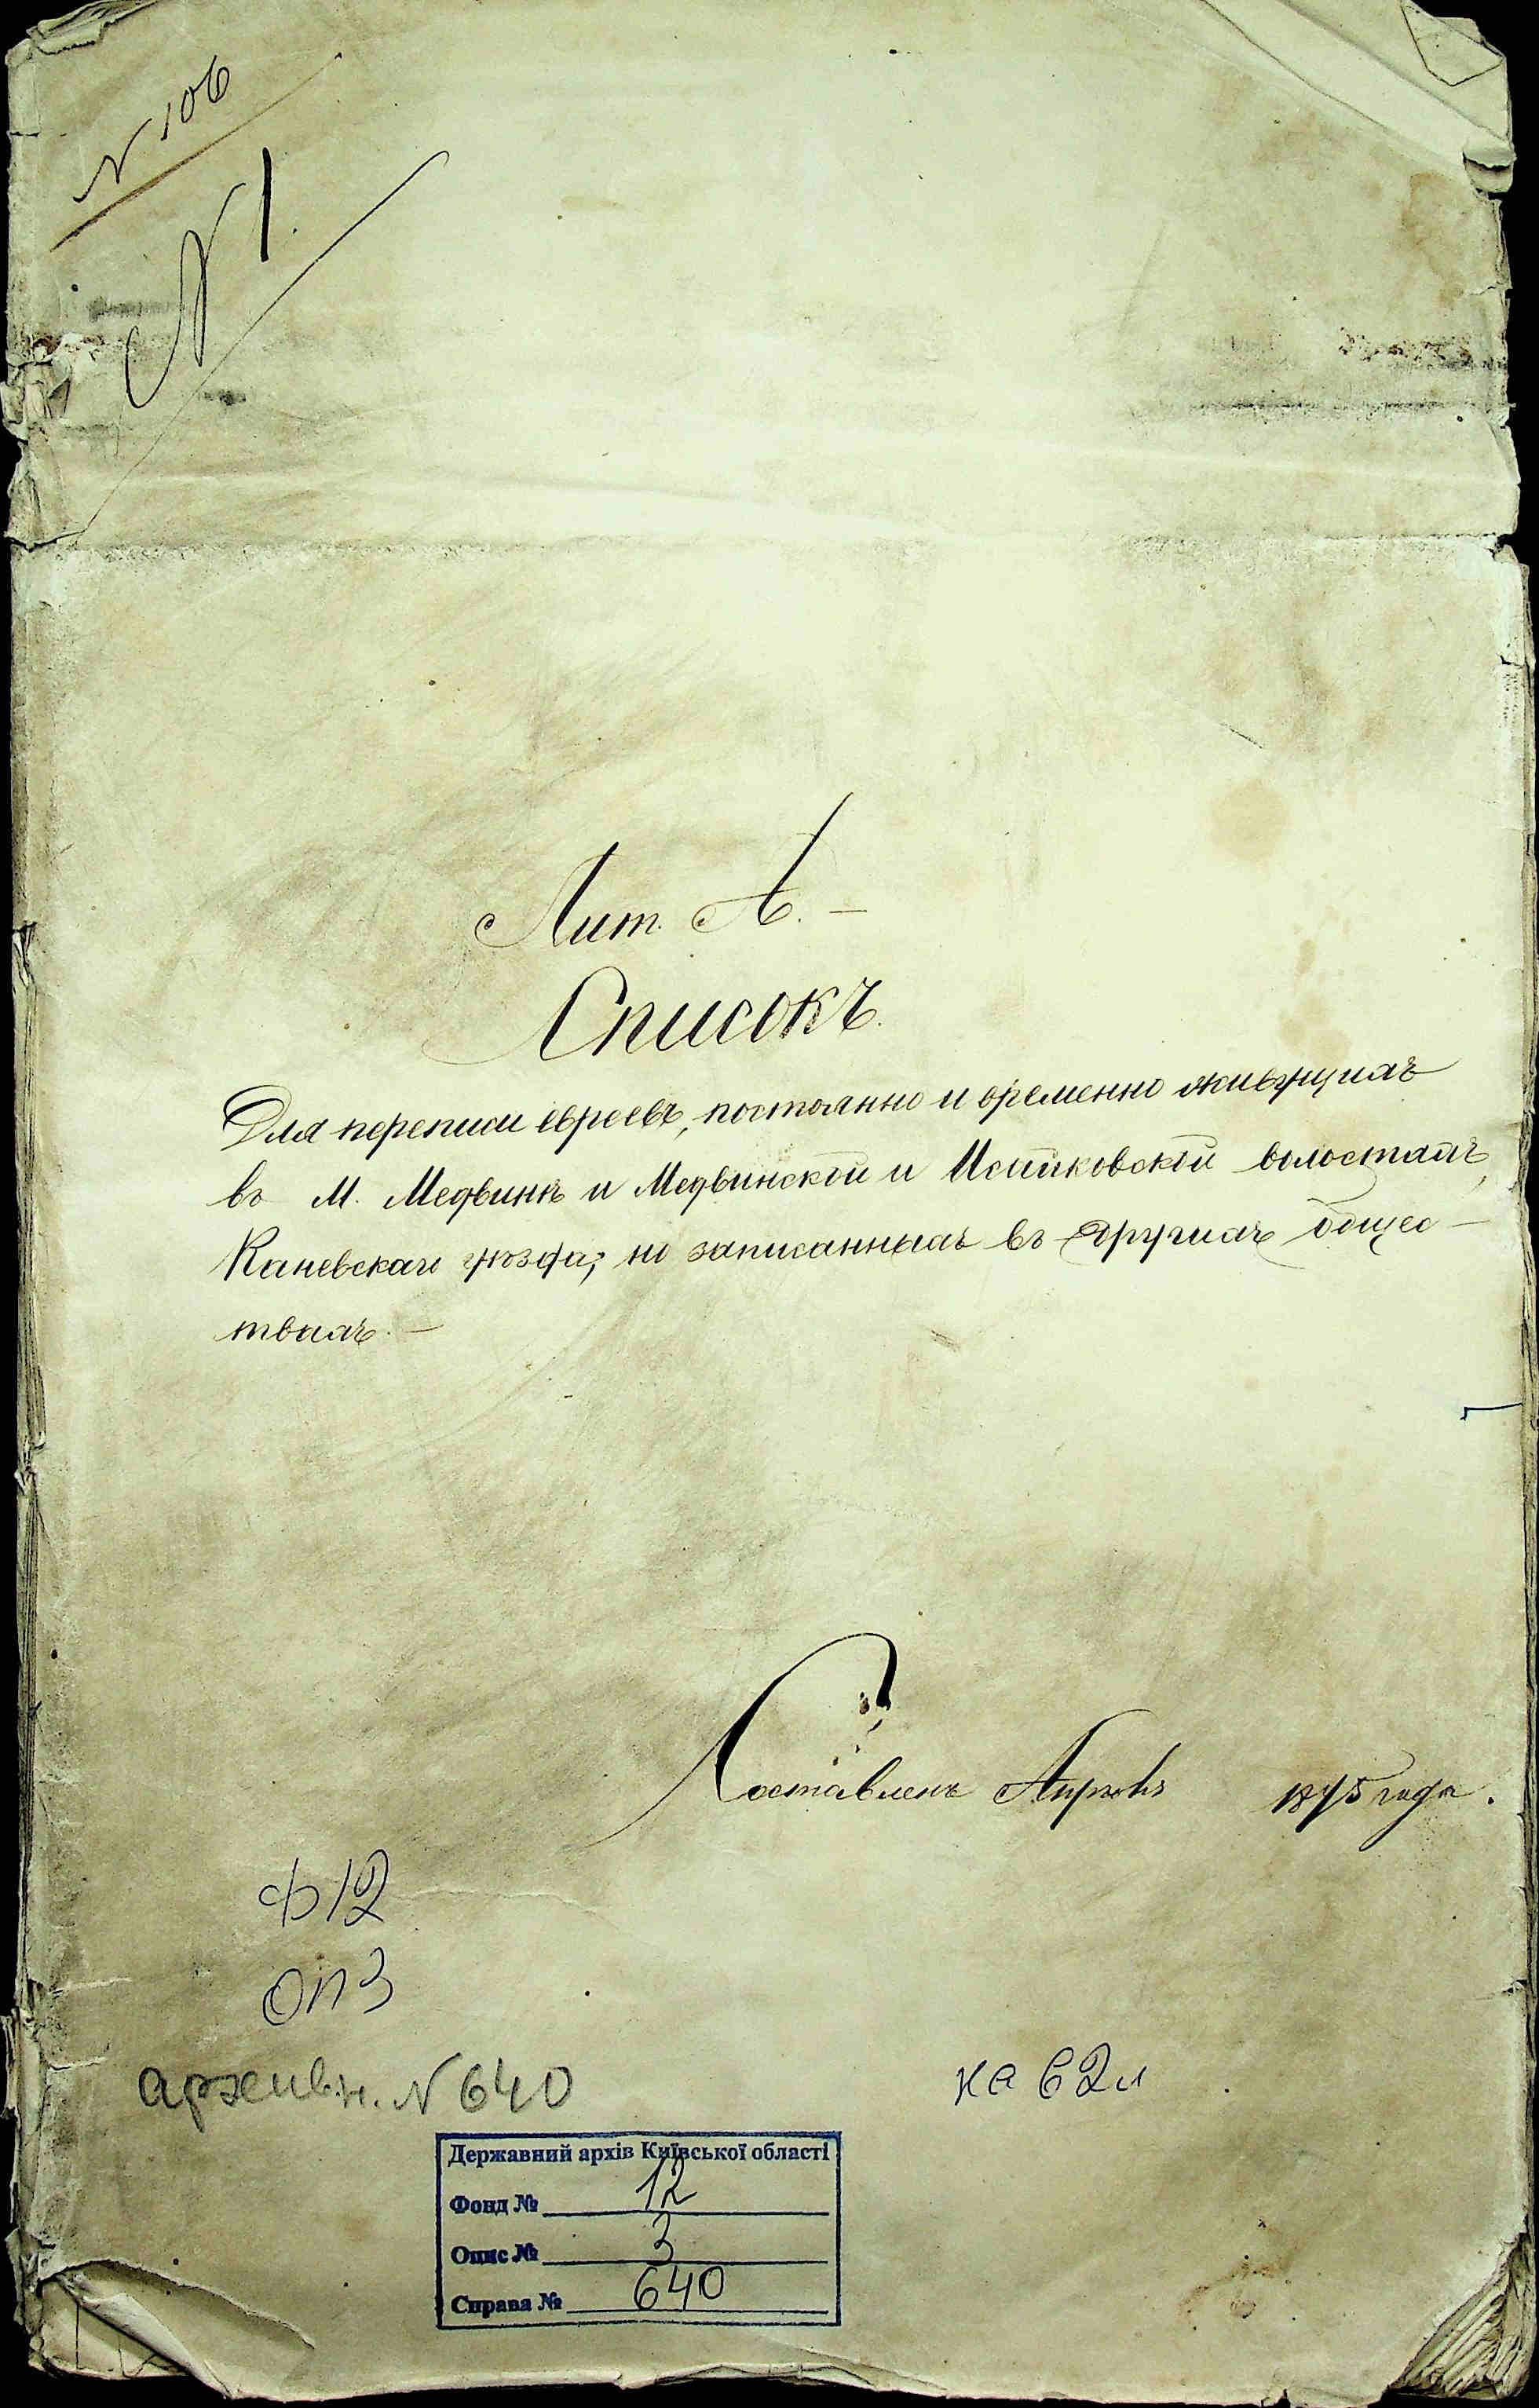 N 106
N 1.
Лит. А. –
Списокъ.
Для переписи евреевъ, постоянно и временно живущихъ
въ М. Медвинѣ и Медвинской и Исайковской волостяхъ,
Каневскаго уѣзда, но записанныхъ въ другихъ общес–
твахъ. –
Составленъ 1875 года.
Ф 12
ОП 3
архивн. N 640
на 62 л
Державний архів Київської області
Фонд № 12
Опис № 3
Справа № 640